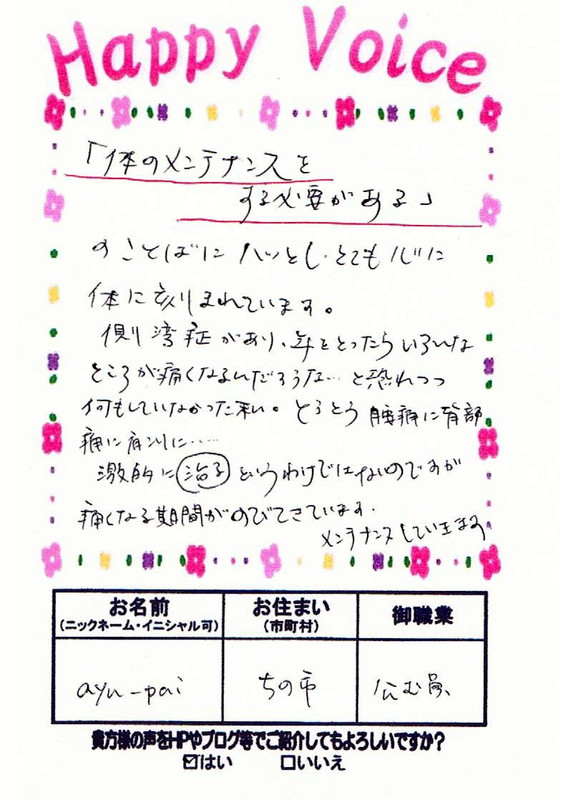 Happy Voice
「体のメンテナンスを
する必要がある」
のことばにハッとし、とても心に
体に刻まれています。
側湾症があり、年をとったらいろんな
ところが痛くなるんだろうな…と恐れつつ
何もしていなかった私。とうとう腰痛に背部
痛に肩こりに……
激的に治るというわけではないのですが
痛くなる期間がのびてきています。
メンテナンスしていきます
お名前
(ニックネーム・イニシャル可)
お住まい
(市町村)
御職業
ayu-pai
ちの市
公む員、
貴方様の声をHPやブログ等でご紹介してもよろしいですか?
☑はい □いいえ